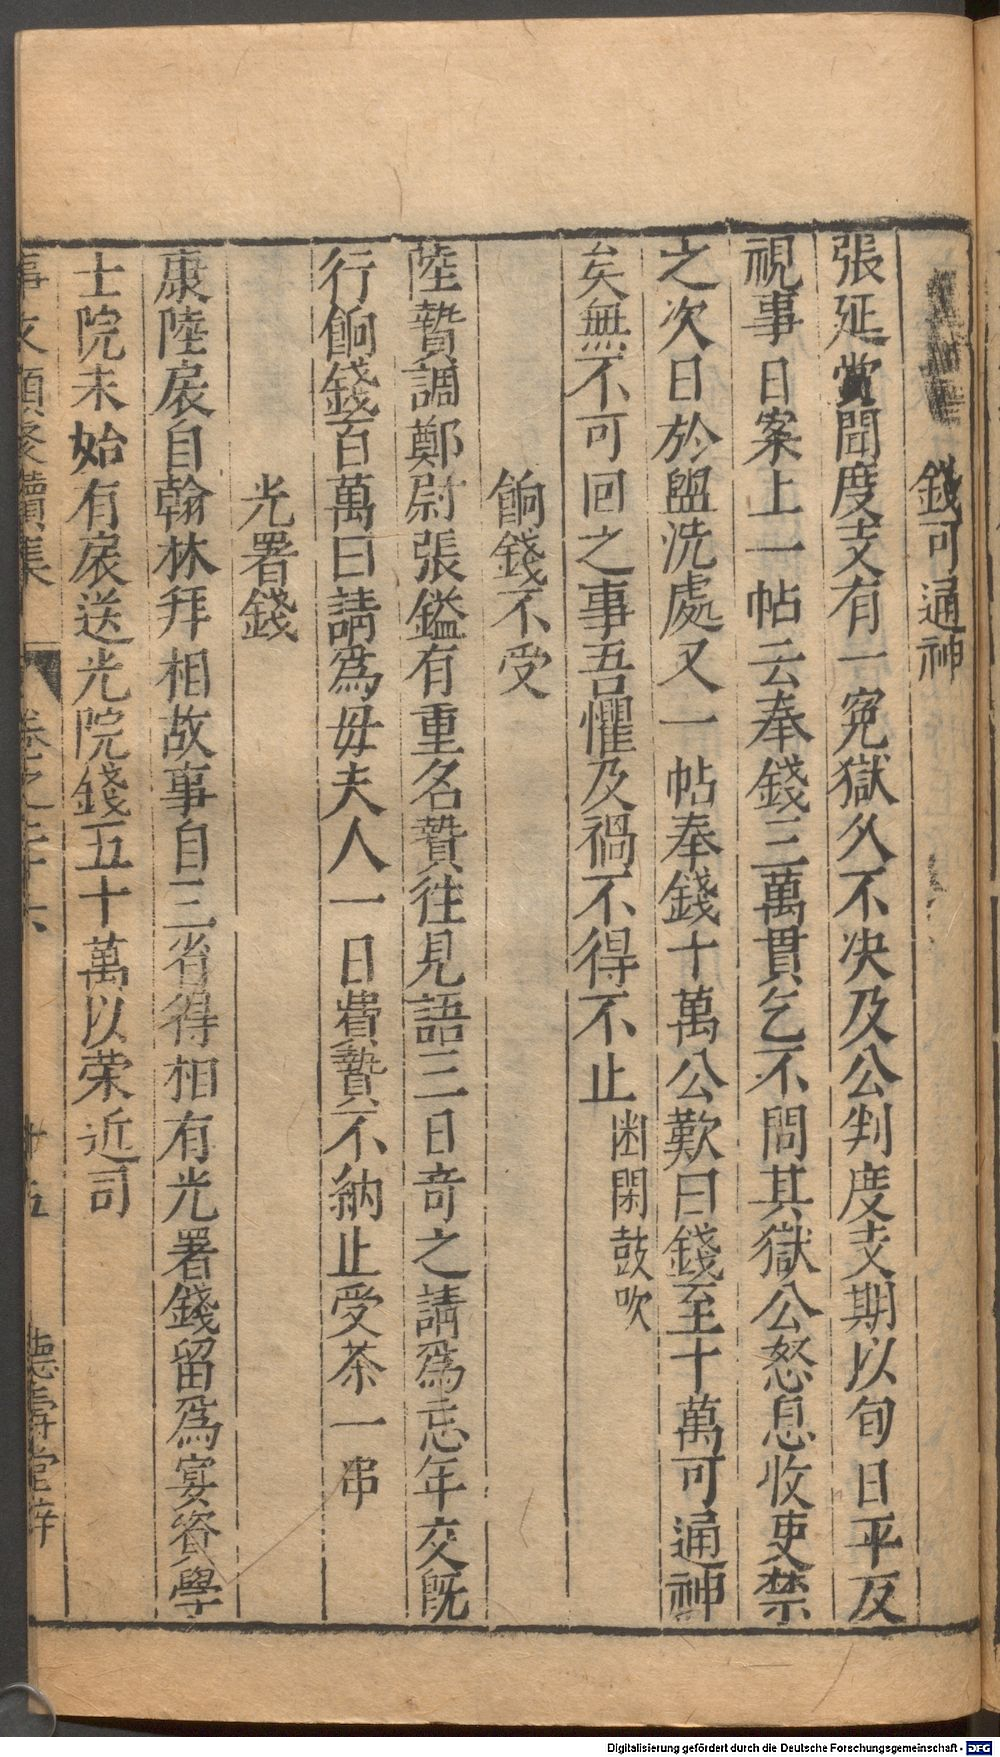 錢可通神
張延賞聞度支有一寃獄久不决及公判度支期以旬日平反
視事日案上一帖云奉錢三萬貫乞不問其獄公怒息收吏禁
之次日於盥洗處又一帖奉錢十萬公歎曰錢至十萬可通神
矣無不可回之事吾懼及禍不得不止 幽閑鼓吹
餉錢不受
陸贄調鄭尉張鎰有重名贄往見語三日竒之請爲忘年交既
行餉錢百萬曰請爲母夫人一日費贄不納止受茶一串
光署錢
康陸扆自翰林拜相故事自三省得相有光署錢留爲宴資學
士院未始有扆送光院錢五十萬以荣近司
事文類聚續集 卷之二十六 十五 德壽堂梓
Digitalisierung gefördert durch die Deutsche Forschungsgemeinschaft - DFG